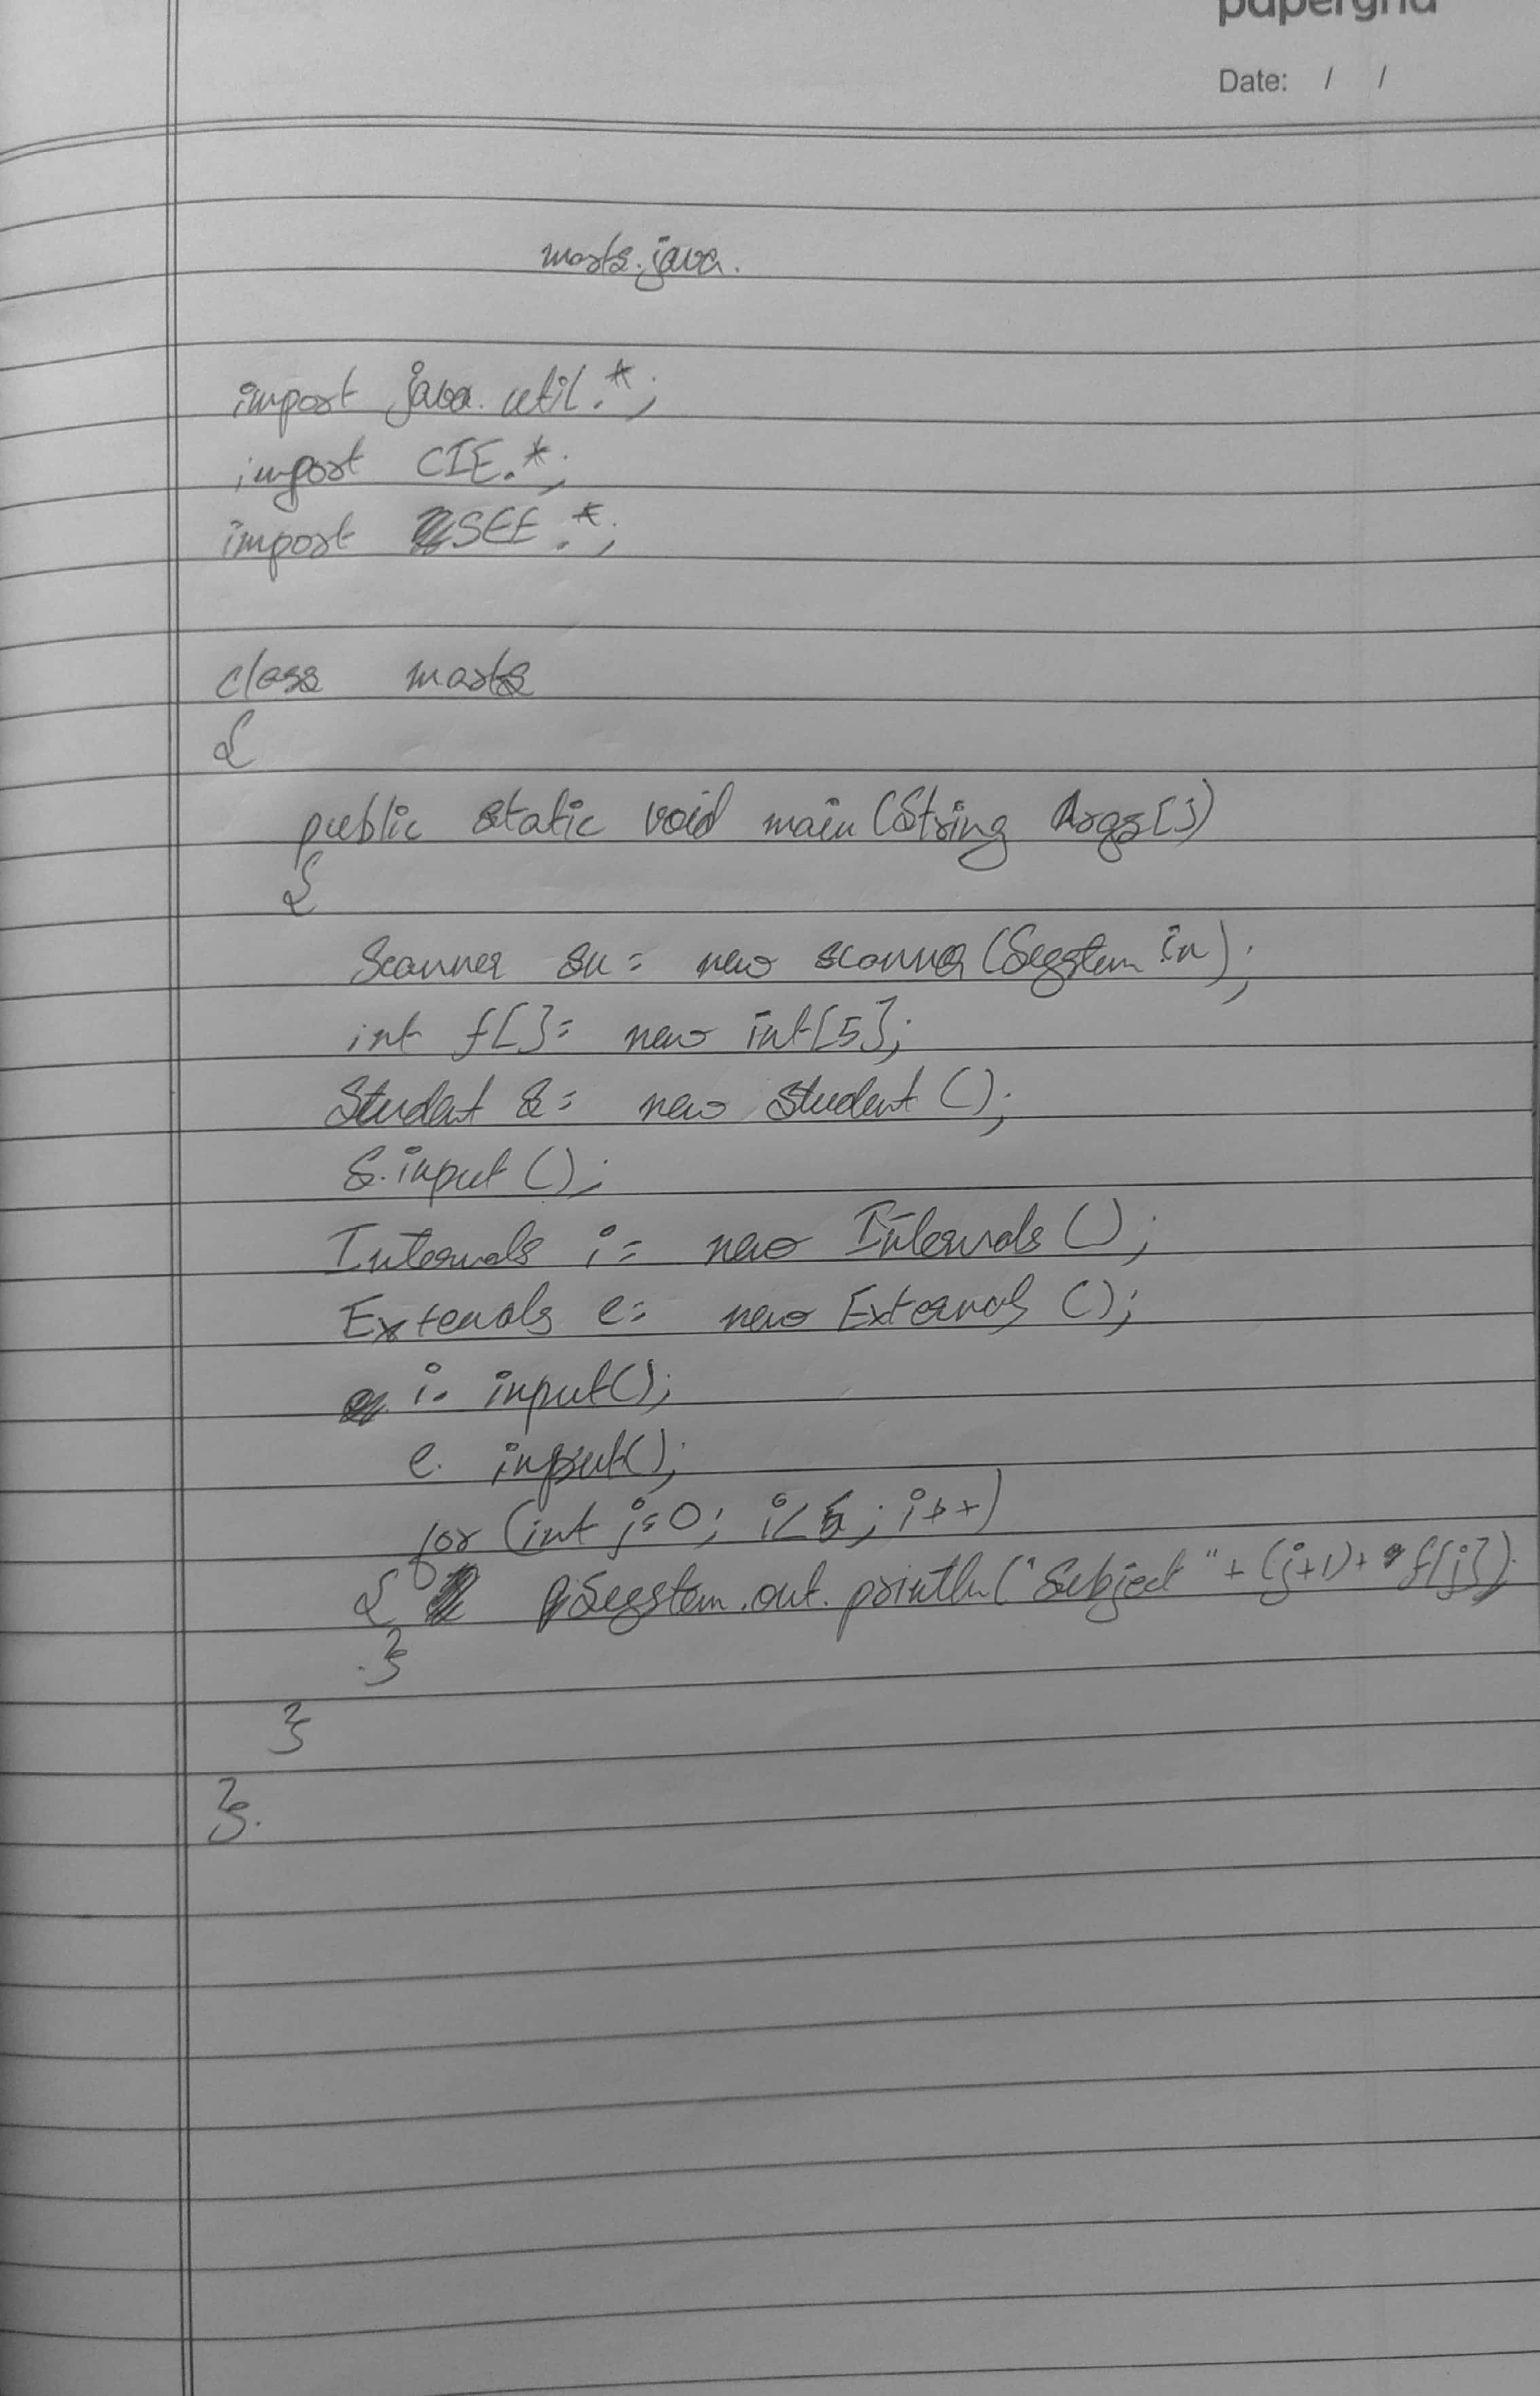 papergrid
Date: / /
marks.java.
import java.util.*;
import CIE.*;
import SEE.*;
class marks
{
public static void main (String Args[])
{
Scanner sn = new scanner (System in);
int f[] = new int[5];
Student s = new Student ();
s.input ();
Internals i = new Internals ();
Externals e = new Externals ();
i. input();
e. input();
for (int j=0; i<5; i++)
{ System.out.println("Subject" + (j+1) + f[j]);
}
}
}.